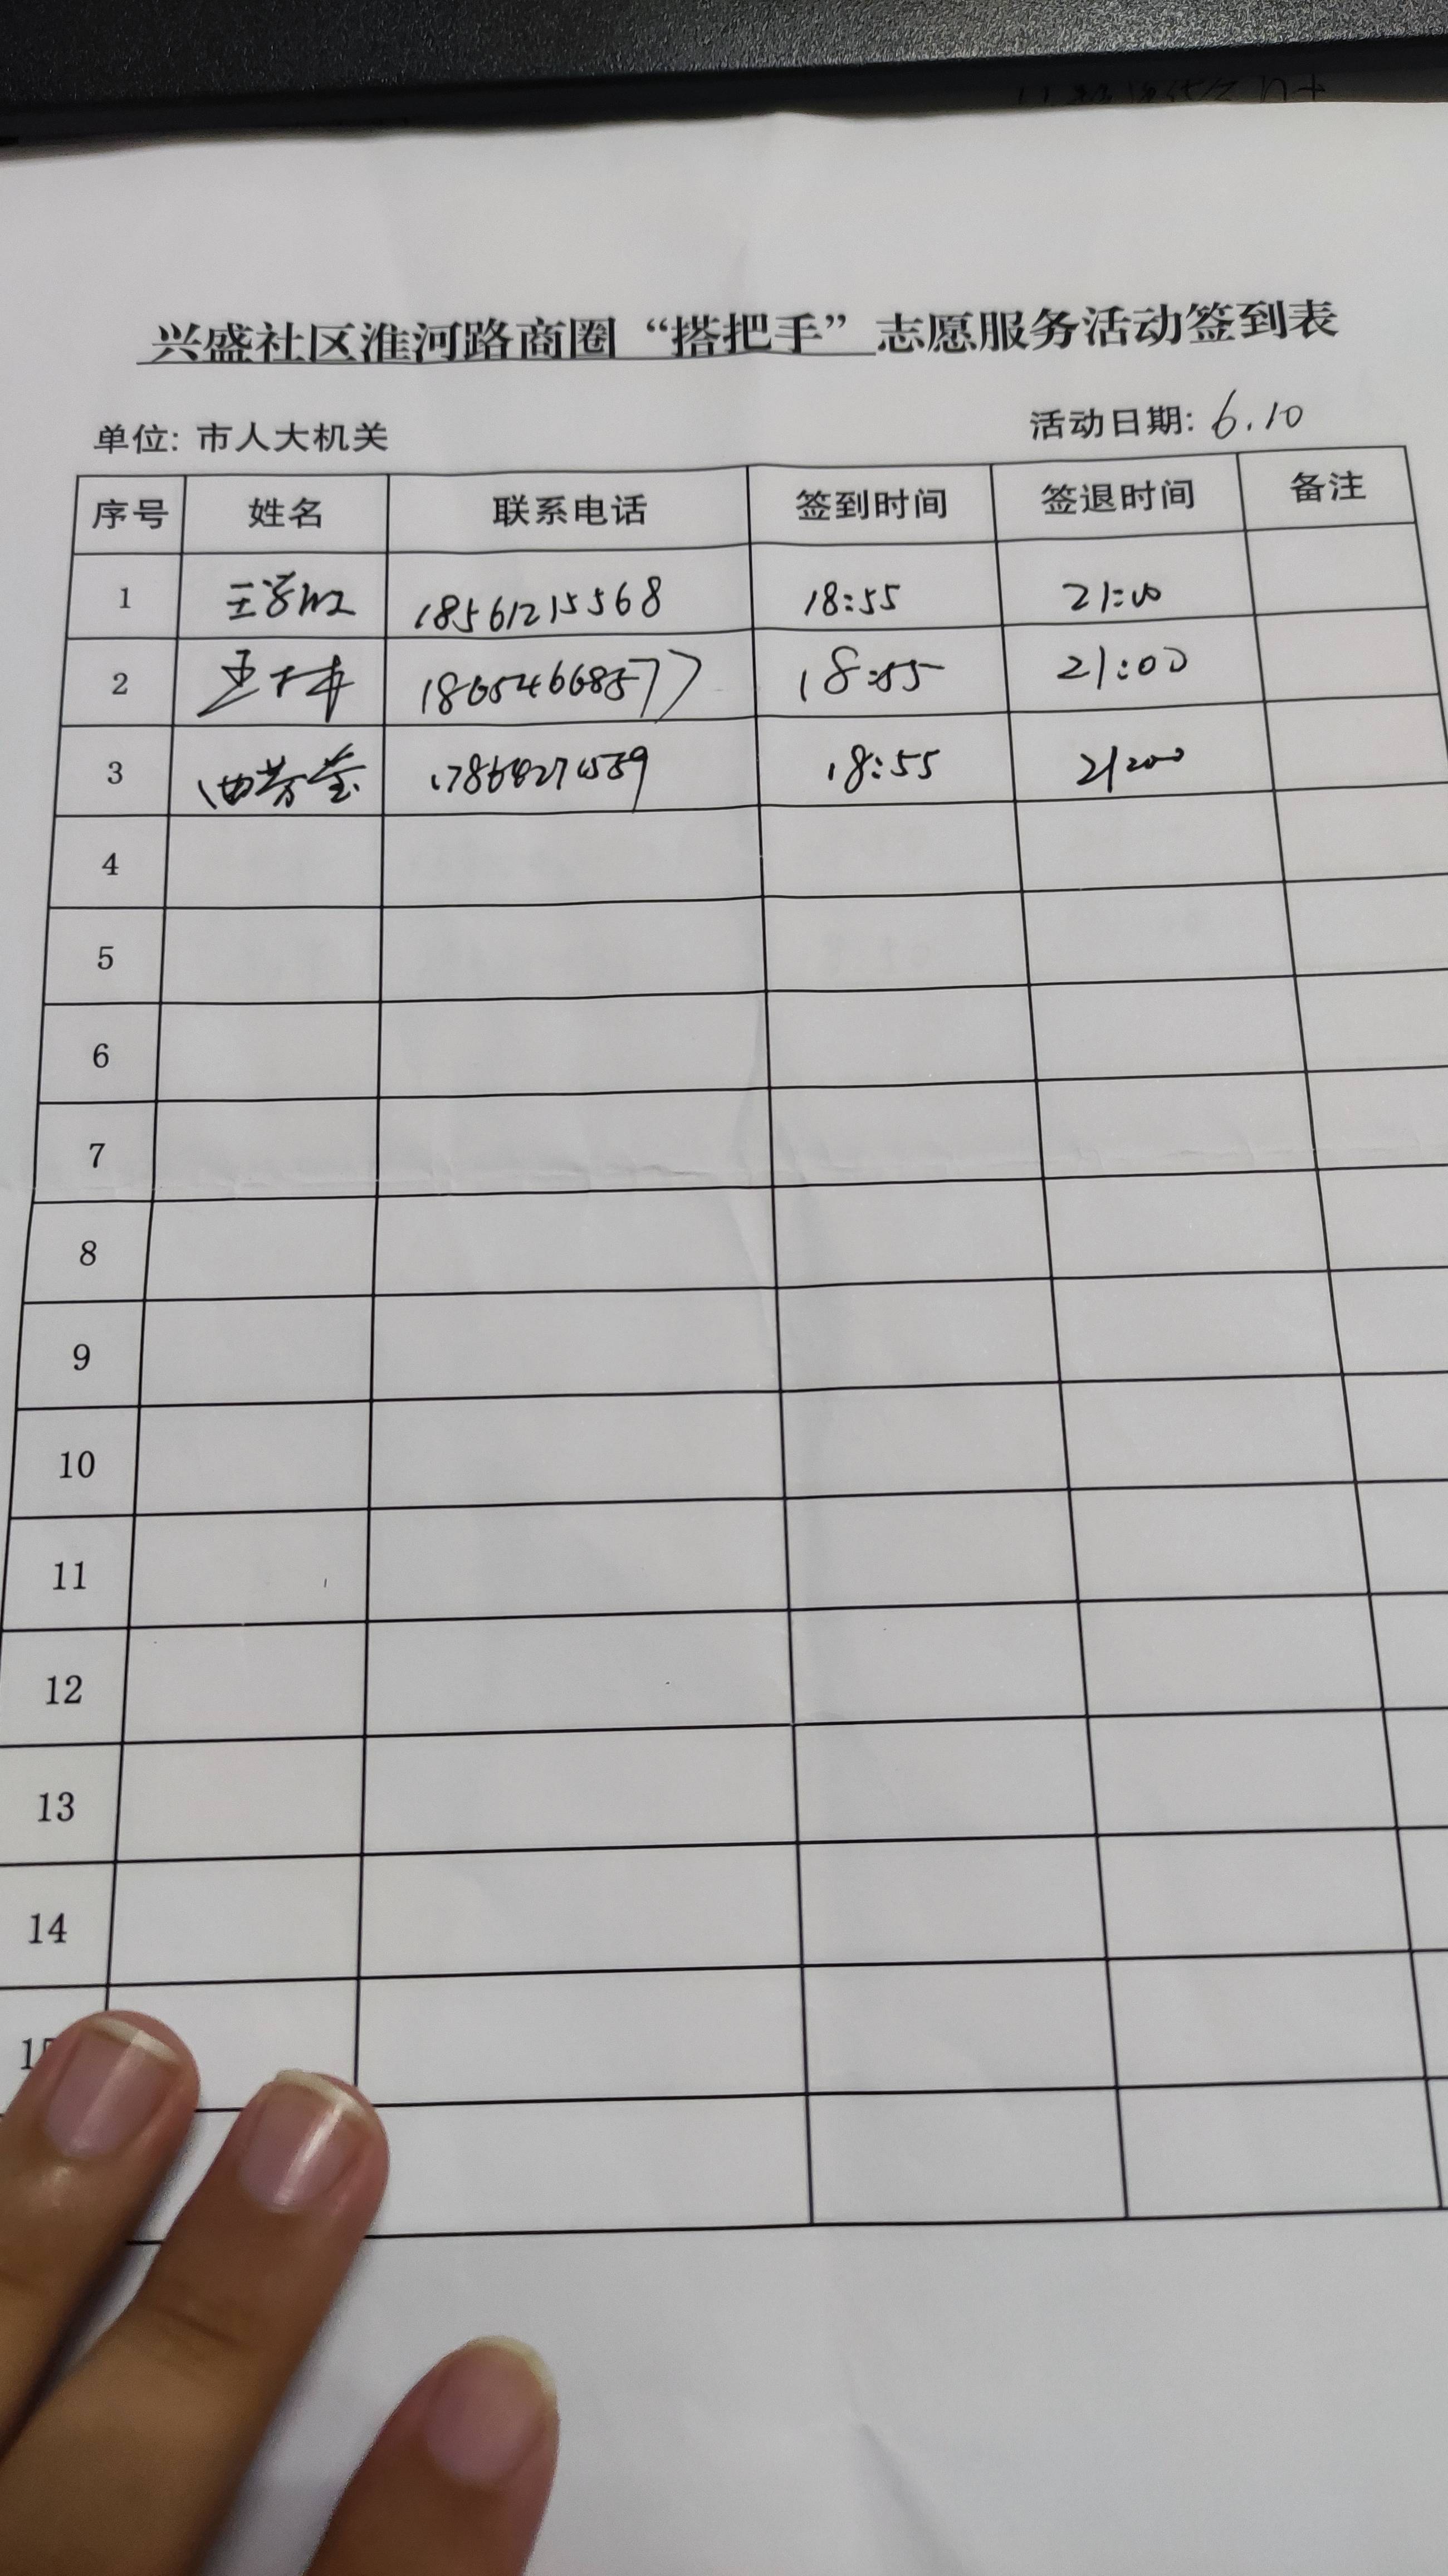 兴盛社区淮河路商圈“搭把手”志愿服务活动签到表
单位: 市人大机关 活动日期: 6.10
序号 姓名 联系电话 签到时间 签退时间 备注
1 18561215568 18:55 21:00
2 18654668577 18:55 21:00
3 18:55 21:00
4
5
6
7
8
9
10
11
12
13
14